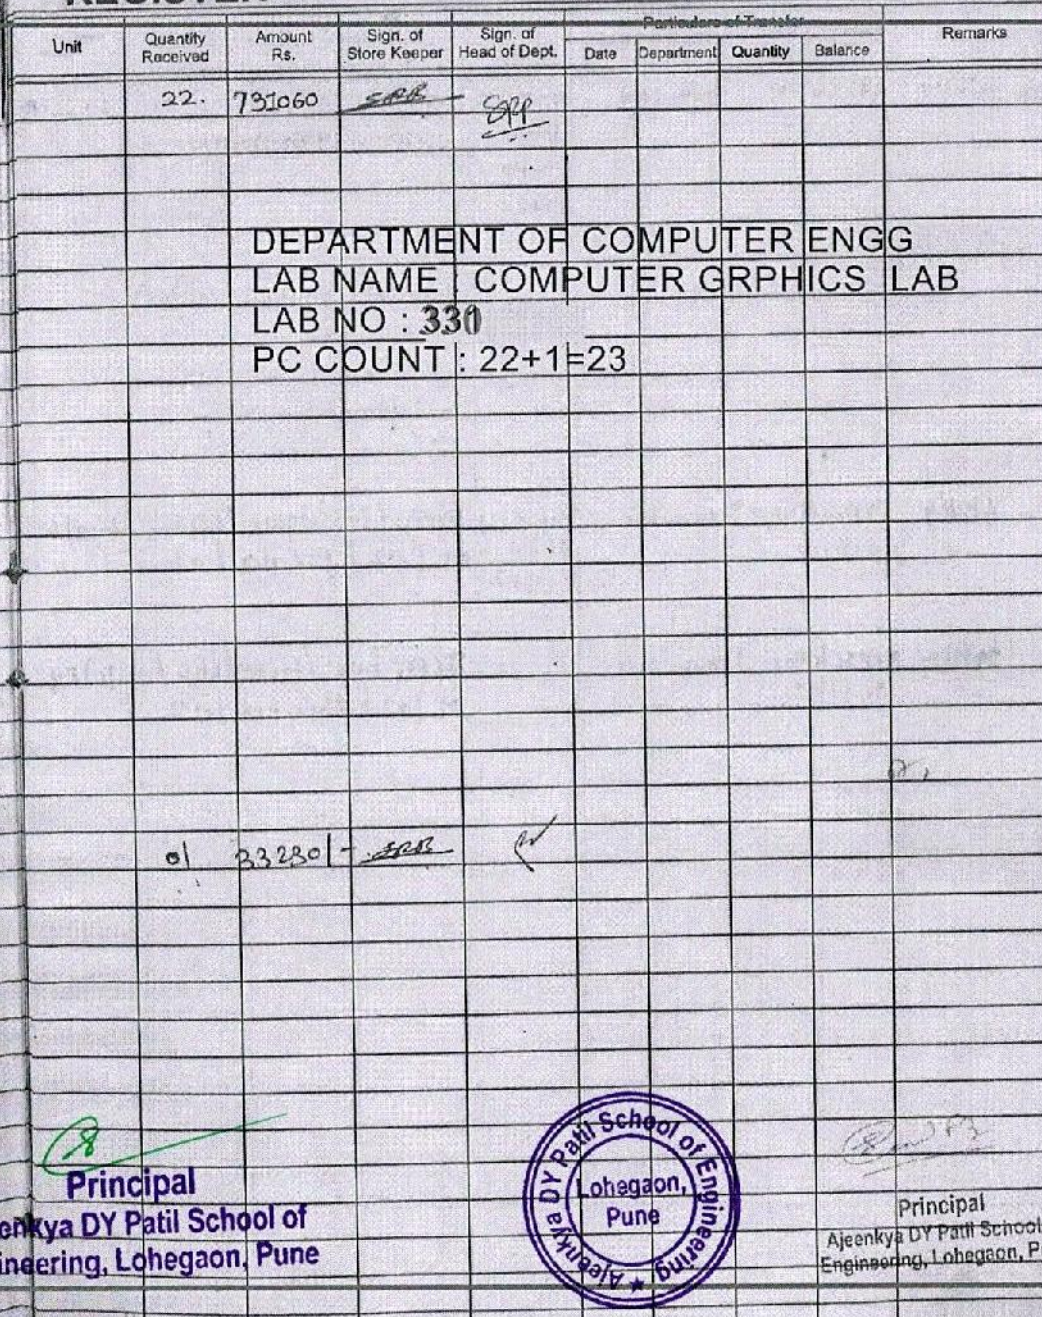 Particulars of Transfer
Unit Quantity Received Amount Rs. Sign. of Store Keeper Sign. of Head of Dept. Date Department Quantity Balance Remarks
22. 731060 SRB SPP
DEPARTMENT OF COMPUTER ENGG
LAB NAME : COMPUTER GRPHICS LAB
LAB NO :
PC COUNT : 22+1=23
01 33230/- SRB
Principal
enkya DY Patil School of
ineering, Lohegaon, Pune
Ajeenkya DY Patil School of Engineering
Lohegaon,
Pune
Principal
Ajeenkya DY Patil School
Engineering, Lohegaon, P